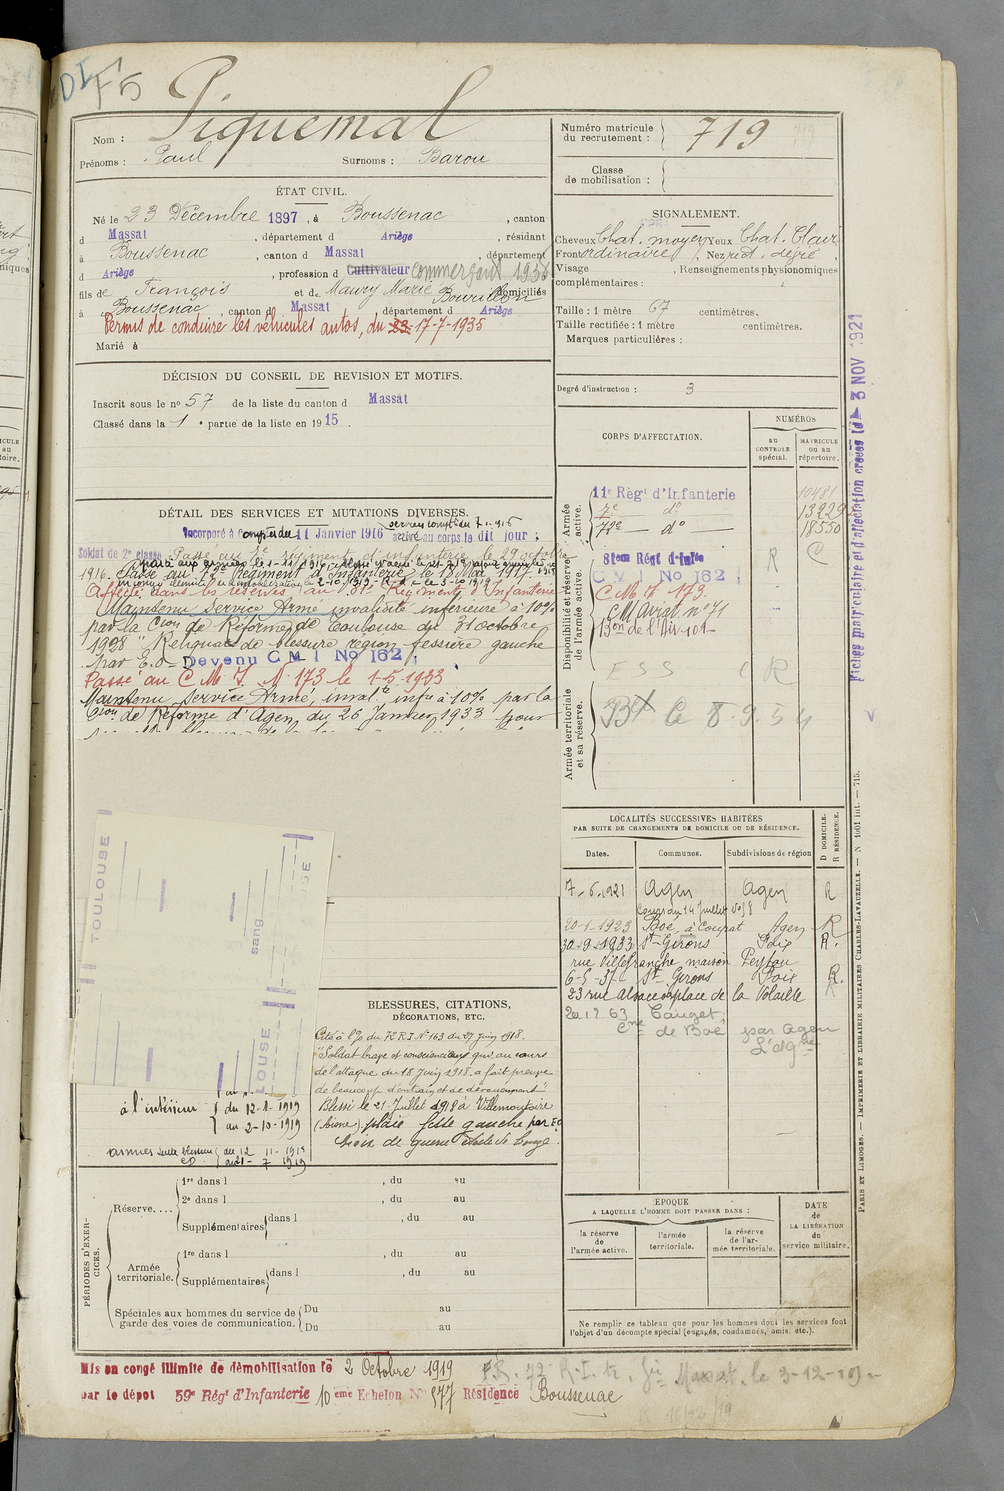 DI F5
Piquemal
Nom :
Prénoms : Paul Surnoms : Barou
Numéro matricule du recrutement : 719
Classe de mobilisation :
ÉTAT CIVIL.
Né le 23 Décembre 1897, à Boussenac, canton
d Massat, département d Ariège, résidant
à Boussenac, canton d Massat, département
d Ariège, profession d Cultivateur Commerçant 1936
fils de François et de Maury Marie Bourillon domiciliés
à Boussenac, canton d Massat département d Ariège
Permis de conduire les véhicules autos, du 23 17-7-1935
Marié à
SIGNALEMENT.
Cheveux Chat. moyen Yeux Chat. Clair
Front ordinaire, Nez rect.
Visage , Renseignements physionomiques
complémentaires :
Taille : 1 mètre 67 centimètres.
Taille rectifiée : 1 mètre centimètres.
Marques particulières :
Degré d'instruction : 3
DÉCISION DU CONSEIL DE REVISION ET MOTIFS.
Inscrit sous le nº 57 de la liste du canton d Massat
Classé dans la 1 e partie de la liste en 1915.
DÉTAIL DES SERVICES ET MUTATIONS DIVERSES.
Incorporé à compter du 11 Janvier 1916 activé au corps le dit jour ;
Soldat de 2e classe Passé au 7e régiment d'infanterie le 29 octobre
1916. Passé au 72e Régiment d'Infanterie le 18 Mai 1917
Affecté dans les réserves au 81e Régiment d'Infanterie
Maintenu Service Armé invalidité inférieure à 10%
par la Cion de Réforme de Toulouse du 31 octobre
1928 "Reliquats de blessure région fessière gauche
par E.O- Devenu C M I No 162 ;
Passé au C M I. N° 173 le 1-5-1933
Maintenu Service Armé, invalté infre à 10% par la
Cion de Réforme d'Agen du 26 Janvier 1933 pour
CORPS D'AFFECTATION.
NUMÉROS
AU CONTROLE spécial.
MATRICULE ou au répertoire.
Armée active.
11e Règt d'Infanterie 10481
7e do 13229
72e do 18550
Disponibilité et réserve de l'armée active.
81eme Régt d'Infie R C
C M I No 162
C M I 173
CM Aviat no 31
Bon de l'Air 101
ESS R
Armée territoriale et sa réserve.
Fiches matriculaire et d'affectation créées le 3 NOV 1921
LOCALITÉS SUCCESSIVES HABITÉES
PAR SUITE DE CHANGEMENTS DE DOMICILE OU DE RÉSIDENCE.
Dates. Communes. Subdivisions de région D DOMICILE. R RÉSIDENCE.
7-6-1921 Agen Agen R
Cours du 14 Juillet No 58
20-1-1923 Boé, à Courrat Agen R
30-9-1933 St-Girons Foix R.
rue Villefranche maison Peyfau
6-5-37 St Girons Foix R.
23 rue Alsace et place de la Volaille
20 12 63
Cne de Boé par Agen
TOULOUSE
sang
BLESSURES, CITATIONS,
DÉCORATIONS, ETC.
Cité à l'O. du 72 R.I. No 163 du 27 Juin 1918.
"Soldat brave et consciencieux qui au cours
de l'attaque du 18 Juin 1918 a fait preuve
de beaucoup d'entrain et de dévouement"
Blessé le 21 Juillet 1918 à Villemontoire
(Aisne) plaie fesse gauche par E.O
Croix de guerre étoile de bronze.
à l'intérieur du 12-1-1919
au 2-10-1919
PÉRIODES D'EXERCICES.
Réserve....
1re dans l , du au
2e dans l , du au
Supplémentaires dans l , du au
Armée territoriale.
1re dans l , du au
Supplémentaires dans l , du au
Spéciales aux hommes du service de garde des voies de communication.
Du au
Du au
ÉPOQUE
A LAQUELLE L'HOMME DOIT PASSER DANS :
la réserve de l'armée active.
l'armée territoriale.
la réserve de l'armée territoriale.
DATE de LA LIBÉRATION du service militaire.
Ne remplir ce tableau que pour les hommes dont les services font
l'objet d'un décompte spécial (engagés, condamnés, omis, etc.).
PARIS ET LIMOGES. — IMPRIMERIE ET LIBRAIRIE MILITAIRES CHARLES-LAVAUZELLE. — N 1001 int. — 715.
Mis en congé illimité de démobilisation le 2 Octobre 1919
par le dépôt 59e Régt d'Infanterie 10 eme Echelon No 577 Résidence Boussenac